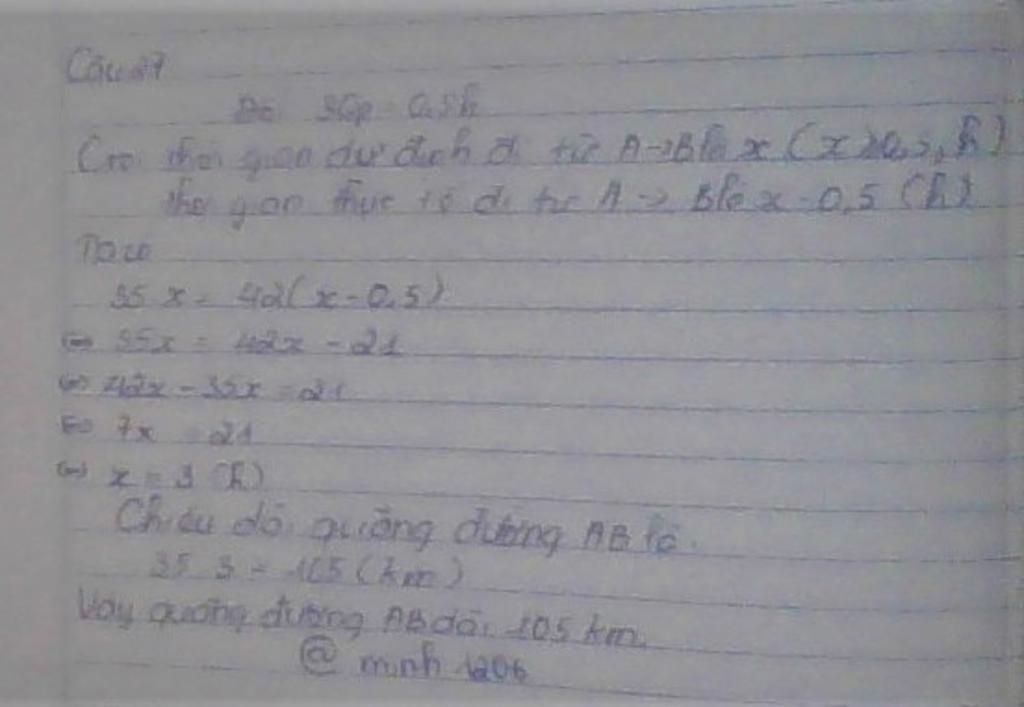 Câu 27
Đổi 30p = 0,5h
Gọi thời gian dự định đi từ A->B là x (x>0,5, h)
thời gian thực tế đi từ A -> B là x - 0,5 (h)
Ta có
35x = 42(x-0,5)
<=> 35x = 42x - 21
<=> 42x - 35x = 21
<=> 7x = 21
<=> x = 3 (h)
Chiều dài quãng đường AB là.
35.3 = 105 (km)
Vậy quãng đường AB dài 105 km.
@ minh 1206